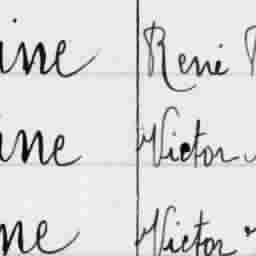 ine René
ine Victor
ne Victor